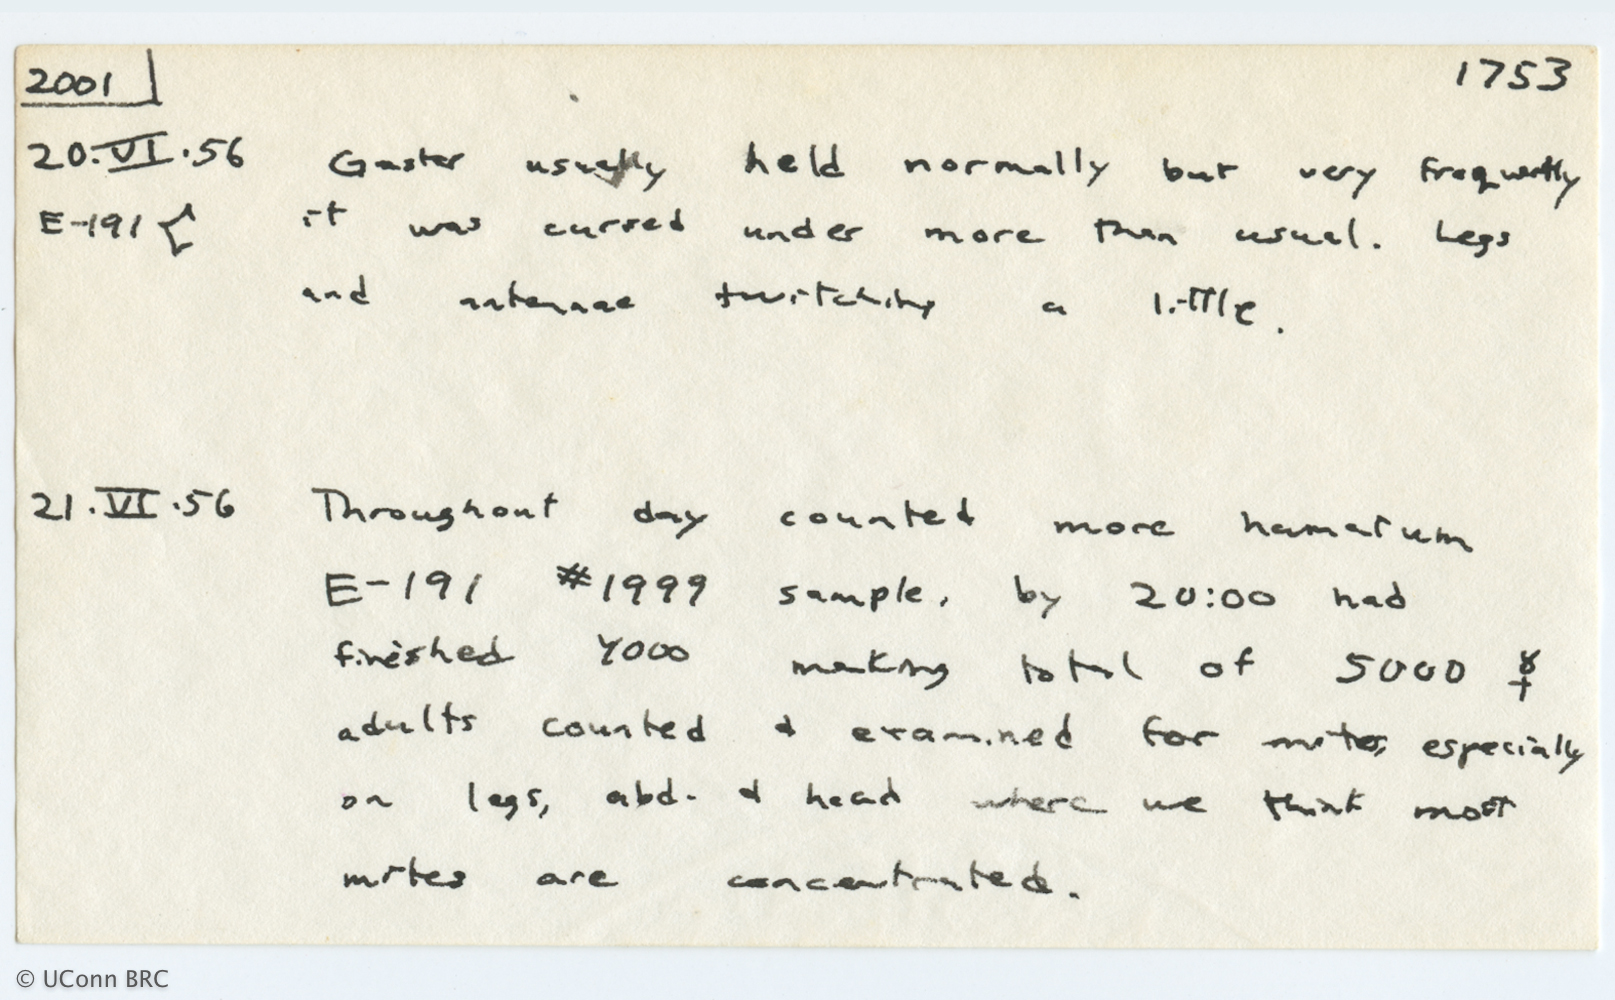 2001 1753
20.VI.56 Gaster usually held normally but very frequently
E-191 it was cursed under more than usual. Legs
and antennae twitching a little.
21.VI.56 Throughout day counted more hamatum
E-191 #1999 sample, by 20:00 had
finished 4000 making total of 5000 ☿
adults counted & examined for mites, especially
on legs, abd. & head where we think most
mites are concentrated.
© UConn BRC